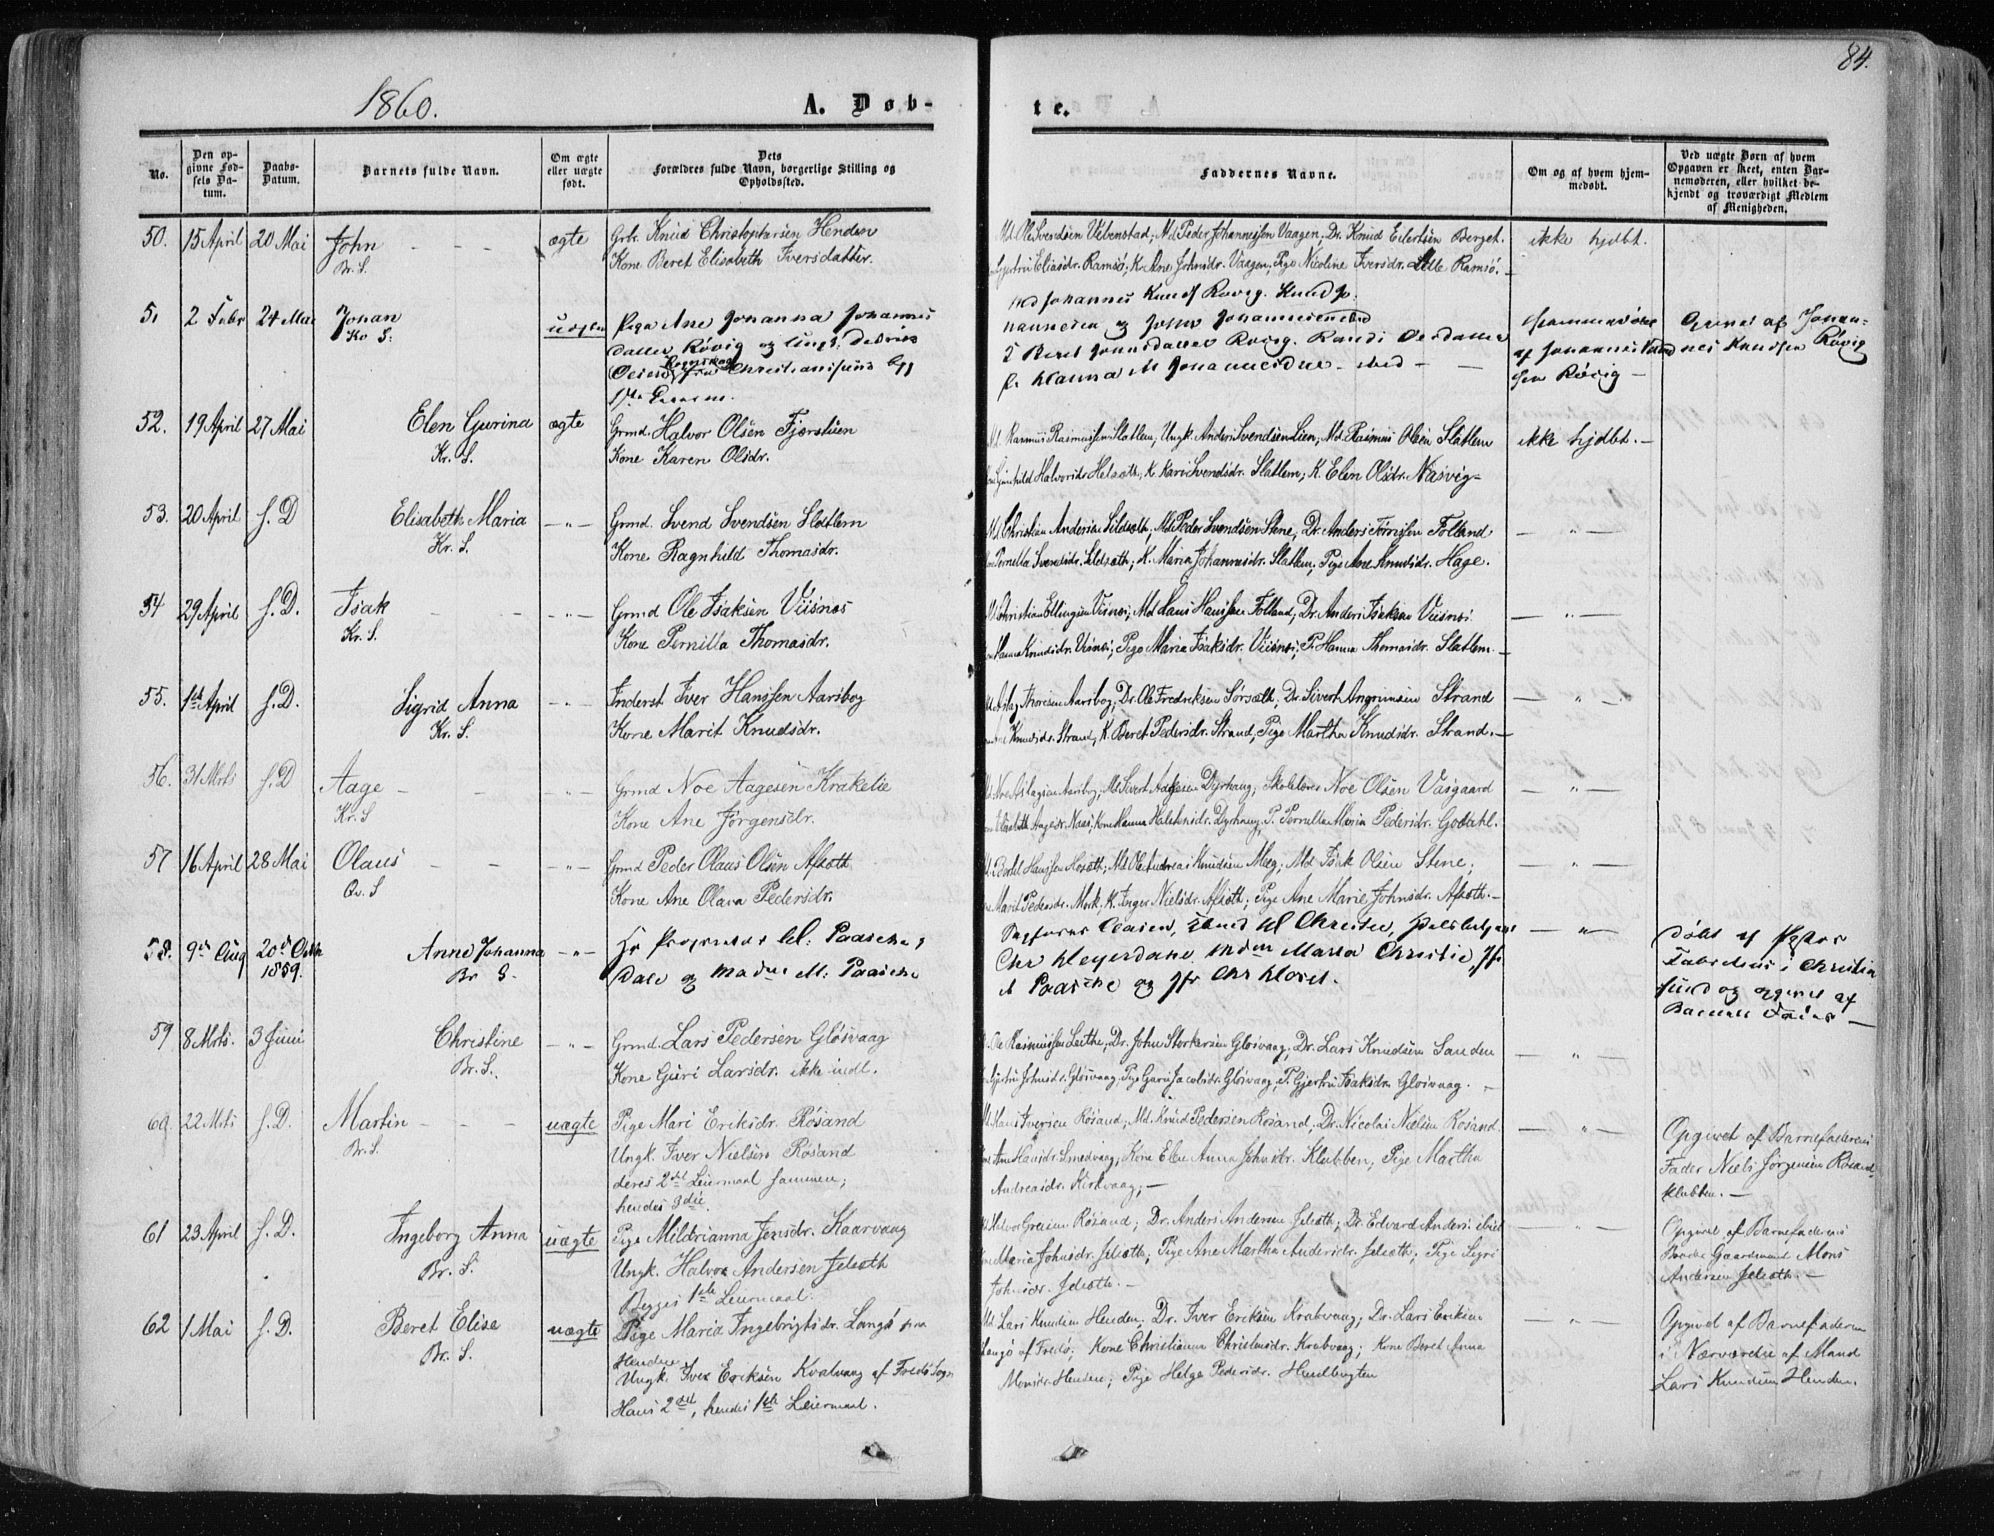 84.
1860.
A. Døb-
te.
No.
Den op-
givne Fød-
sels Da-
tum.
Daabs-
Datum.
Barnets fulde Navn.
Om ægte
eller uægte
født.
Dets
Forældres fulde Navn, borgerlige Stilling og
Opholdssted.
Faddernes Navne.
Om og af hvem hjem-
medøbt.
Ved uægte Børn af hvem
Opgaven er skeet, enten Bar-
nemoderen, eller hvilket be-
kjendt og troværdigt Medlem
af Menigheden.
50. 15 April 20 Mai John - - - ægte Gbr. Knud Christophersen Henden
Br. S. Kone Beret Elisabeth Iversdatter.
Md. Ole Svendsen Vebenstad, Md. Peder Johannessen Vaagen, Dr. Knud Eilertsen Berget. ikke hjdbt.
Eliasdr. Ramsø, K. Ane Johnsdr. Vaagen, Pige Nicoline Iversdr. Lille Ramsø.
51 2 Febr 24 Mai Johan uægte Pige Ane Johanna Johannes
Ko S. datter Røvig og
Christiansund
Johannes Knuds Røvig.
og John
Beret Jonsdatter Røvig. Randi
Hanna M
af Johannes
sen Røvig —
af Johan-
nes Knudsen Røvig
52. 19 April 27 Mai Elen Gurina ægte Grmd. Halvor Olsen Fjørstuen
Kr. S. Kone Karen Olsdr.
Md. Rasmus Rasmussen Slatlem, Ungk. Anders Svendsen Lien, Md. Rasmus Olsen Slatlem ikke hjdbt. —
Halvorsdr. Helsøth, K. Kari Svendsdr. Slatlem, K. Elen Olsdr. Næsvig —
53. 20 April s. D Elisabeth Maria — " — Grmd. Svend Svendsen Slatlem
Kr. S. Kone Ragnhild Thomasdr.
Md. Christian Andersen Sildsøth, Md. Peder Svendsen Stene, Dr. Anders Folland — " —
Pernella Svendsdr. Sildsøth; K. Maria Johannesdr. Slatlem, Pige Ane Knudsdr. Hage.
54 29 April s. D. Isak - - - — " — Grmd Ole Isaksen Viisnes
Kr. S. Kone Pernilla Thomasdr.
Christian Ellingsen Viisnes; Md Hans Hansen Folland, Dr. Anders Isaksen Viisnes — " —
Hanna Knudsdr. Viisnes; Pige Maria Isaksdr. Viisnes; P. Hanna Thomasdr. Slatlem. —
55. 1ste April s. D. Sigrid Anna — " — Inderst Iver Hanssen Aarsbog
Kr. S. Kone Marit Knudsdr.
Aslag Thoresen Aarsbog, Dr. Ole Fredriksen Sørsæth, Dr. Sivert Strand — " —
Knudsdr. Strand, K. Beret Pedersdr. Strand, Pige Martha Knudsdr. Strand. —
56. 31 Mrts s. D Aage - - - — " — Grmd Noe Aagesen Krakelie
Kr. S Kone Ane Jørgensdr.
Noe Aslagsen Aarsbog, Md. Sivert Aagesen Dyrhaug, Skolelærer Noe Olsen Vasgaard — " —
Elisabeth Aagesdr. Naas, Kone Hanna Halstensdr. Dyrhaug, P. Pernilla Maria Pedersdr. Godtahl.
57 16 April 28 Mai Olaus - - — " — Grmd Peder Olaus Olsen Afsæth
Qv. S Kone Ane Olava Pedersdr.
Bertel Hanssen Hosæth; Md Ole Andreas Knudsen Mæg; Md Isak Olsen Stene; — " —
Marit Pedersdr. Mork, K. Inger Nielsdr. Afsæth; Pige Ane Marie Johnsdr. Afsæth. —
58. 9de Aug 20de Octbr Anne Johanna — " — Hr Proprietær M: Paasche,
1859. Br S. Dale og Madme M: Paasche
Claesen, Christie,
Chr Heyerdahl. Mdm Maria Christie, Jfr
A Paasche og Jfr Chr Kloset. — " —
døbt af Pastor
Fabritius i Christian
sund og opgivet af
Barnets Fader —
59 8 Mrts. 3 Juni Christine — " — Grmd. Lars Pedersen Gløsvaag
Br. S. Kone Guri Larsdr. ikke indl.
Ole Rasmussen Leithe, Dr. John Storkersen Gløsvaag, Dr. Lars Knudsen Sanden — " —
Johnsdr. Gløsvaag, Pige Guri Jacobsdr. Gløsvaag, P. Gjertru Isaksdr. Gløsvaag. —
60. 22 Mrts s. D. Martin - - - uægte Pige Mari Eriksdr. Røsand
Br. S. Ungk. Iver Nielsen Røsand
deres 2det Leiermaal sammen;
hendes 3die.
Hans Iversen Røsand, Md. Knud Pedersen Røsand, Dr. Nicolai Nielsen Røsand. — " —
Ane Hansdr. Smedvaag, Kone Elen Anna Johnsdr. Klubben, Pige Martha
Andreasdr. Kirkvaag; —
Opgivet af Barnefaderens
Fader Niels Jørgensen Røsand
klubben. —
61 23 April s. D. Ingeborg Anna uægte Pige Mildrianna Jensdr. Kaarvaag
Br. S. Ungk. Halvor Andersen Jelsæth
Begges 1ste Leiermaal.
Halvor Røsand; Dr. Anders Andersen Jelsæth; Dr. Edvard Anders. ibid — " —
Maria Johnsdr. Jelsæth; Pige Ane Martha Andersdr. Jelsæth; Pige Sigri
Johnsdr. Jelsæth. —
Opgivet af Barnefaderens
Broder Gaardmand Mons
Andersen Jelsæth. —
62 1 Mai s. D. Beret Elise uægte Pige Maria Ingebrigtsdr. Langø paa
Br. S. Henden
Ungk. Iver Eriksen Kvalvaag af Fredø Sogn
Hans 2det, hendes 1ste Leiermaal.
Md Lars Knudsen Henden, Dr. Iver Eriksen Kvalvaag; Dr. Lars Eriksen — " —
Langø af Fredø; Kone Christianna Christensdr. Kvalvaag; Kone Beret Anna
Monsdr. Henden; Pige Helge Pedersdr.
Opgivet af Barnefaderen
i Nærværelse af Mand
Lars Knudsen Henden.